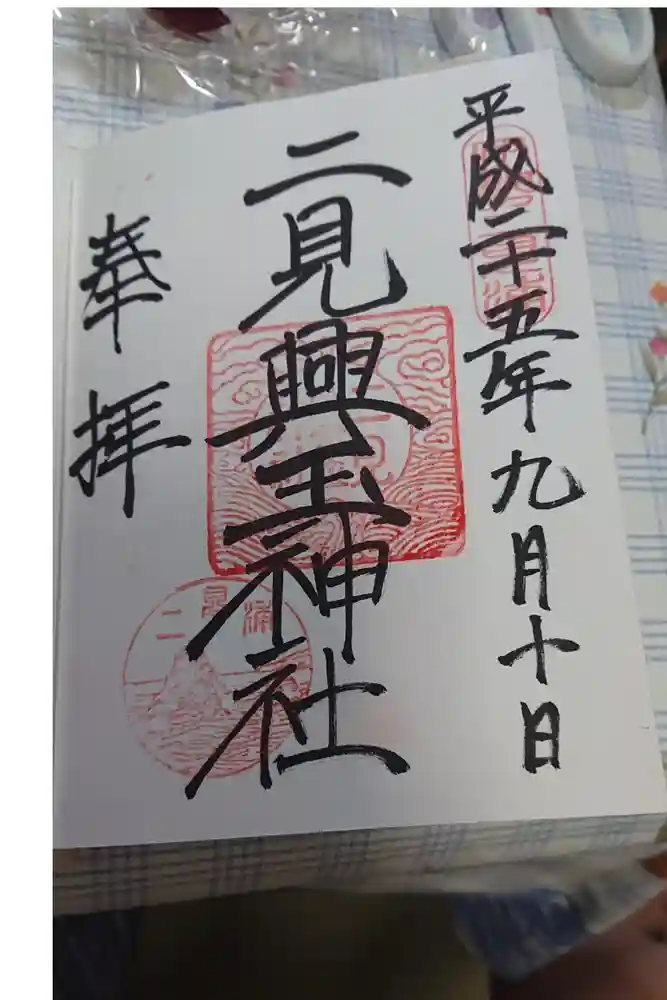 平成二十五年九月十日
二見興玉神社
奉拝
二見浦